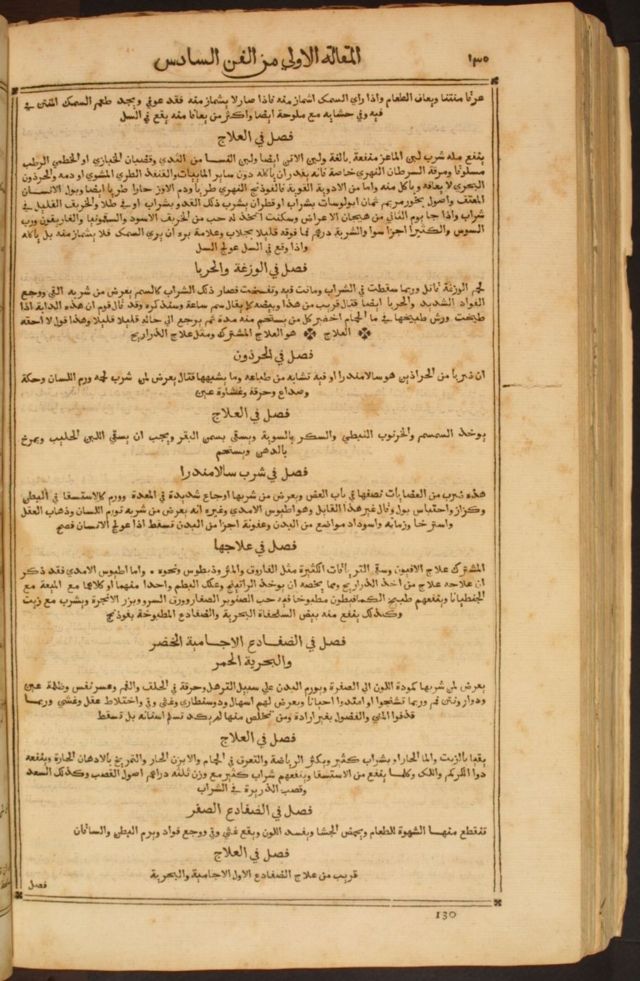 ١٣٠ المقالة الاولي من الفن السادس
عرقا منتنا ويعاف الطعام واذا راي السمك اشماز منه فاذا صار لا يشماز منه فقد عوفي ويجد طعم السمك المنتن في
فيه وفي جشايه مع ملوحة ايضا واكثر من يعافا منه يقع في السل
فصل في العلاج
ينفع منه شرب لبن الماعز منفعة بالغة ولبن الاتن ايضا ولبن النسا من الثدي وقضبان الخبازي او الخطمي الرطب
مسلوقا ومرقة السرطان النهري خاصة فانه يقدر ان ياكله دون ساير المابيات والقنفذ الطري المشوي او دمه والحرذون
البحري لا يعافه وياكل منه واما من الادوية القوية فالفوذنج النهري طريا ودم الاوز حارا طريا ايضا وبول الانسان
المعتق واصول بخور مريم ثمان ابولوسات بشراب او قطران بشرب ذلك الغدو بشراب او في طلا والخربق القليل في
شراب واذا جا يوم الثاني من هيجان الاعراض وسكنت اتخذ له حب من الخربق الاسود والسقمونيا والغاريقون ورب
السوس والكثيرا اجزا سوا والشربة درهم فما فوقه قليلا بجلاب وعلامة برءه ان يري السمك فلا يشماز منه بل ياكله
واذا وقع في السل عولج السل
فصل في الوزغة والحربا
لحم الوزغة قاتل وربما سقطت في الشراب وماتت فيه وتفسخت فصار ذلك الشراب كالسم يعرض من شربه القي ووجع
الفواد الشديد والحربا ايضا قتال قريب من هذا وبيضه كما يقال سم ساعة وسنذكره وقد قال قوم ان هذه الدابة اذا
طبخت ورش طبيخها في ما الحمام اخضر كل من يستحم منه مدة ثم يرجع الي حاله قليلا قليلا وهذا قول لا احقه
العلاج هو العلاج المشترك ومثل علاج الذراريح
فصل في الحرذون
ان ضربا من الحراذين هو سالامندرا او فيه تشابه من طباعه وما يشبهها فقال يعرض لمن شرب لحمه ورم اللسان وحكة
وصداع وحرقة وغشاوة عين
فصل في العلاج
يوخذ السمسم والخرنوب النبطي والسكر بالسوية ويسقي بسمن البقر ويجب ان يسقي اللبن الحليب ويمرخ
بالدهن ويستحم
فصل في شرب سالامندرا
هذه ضرب من العضايات نصفها في باب العض ويعرض من شربها اوجاع شديدة في المعدة وورم كالاستسقا في البطن
وكزاز واحتباس بول وقال غير هذا القايل وهو اطيوس الامدي وغيره انه يعرض من شربه تورم اللسان وذهاب العقل
واسترخا وزمانه واسوداد مواضع من البدن وعفونة اجزا من البدن تسقط اذا عولج الانسان فصح
فصل في علاجها
المشترك علاج الافيون وسقي الترياقات الكثيرة مثل الفاروق والمثرودبطوس ونحوه واما اطيوس الامدي فقد ذكر
ان علاجه علاج من اخذ الذراريح ومما يخصه ان يوخذ الراتينج وعلك البطم واحدا منهما او كلاهما مع الميعة مع
الجنطيانا وينفعهم طبيخ الكمافيطوس مطبوخا فيه حب الصنوبر الصغار وورق السرو وبزر الانجرة ويشرب مع زيت
وكذلك ينفع منه بيض السلحفاة البحرية والضفادع المطبوخة بفوذنج
فصل في الضفادع الاجامية الخضر
والبحرية الحمر
يعرض لمن شربها كمودة اللون الي الصفرة وبورم البدن علي سبيل الترهل وحرقة في الحلق والفم وعسر نفس وظلمة عين
ودوار ونتن فم وربما تشنجوا او امتدوا احيانا ويعرض لهم اسهال ودوسنطاري وغثي وقي واختلاط عقل وغشي وربما
قذفوا المني والفضول بغير ارادة ومن تخلص منها لم يكد تسلم اسنانه بل تسقط
فصل في العلاج
يقيا بالزيت والما الحار او بشراب كثير ويكثر الرياضة والتعرق في الحمام والابزن الحار والتمريخ بالادهان الحارة وينفعه
دوا الكركم واللك وكلما ينفع من الاستسقا وينفعهم شراب كثير مع وزن ثلثه دراهم اصول القصب وكذلك السعد
وقصب الذريرة في الشراب
فصل في الضفادع الصفر
تنقطع منها الشهوة للطعام ويحمض الجشا ويفسد اللون ويقع غثي وقي ووجع فواد ويرم البطن والساقان
فصل في العلاج
قريب من علاج الضفادع الاول الاجامية والبحرية
فصل
130